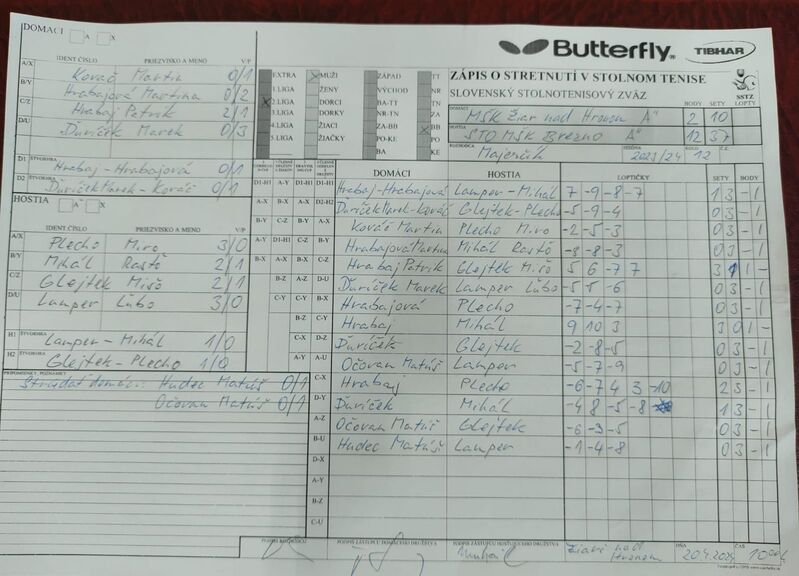 DOMÁCI A X
Butterfly TIBHAR
IDENT.ČÍSLO PRIEZVISKO A MENO V/P
A/X Kováč Martin 0/1
B/Y Hrabajová Martina 0/2
C/Z Hrabaj Patrik 2/1
D/U Ďuríček Marek 0/3
D1 ŠTVORHRA Hrabaj-Hrabajová 0/1
D2 ĎuríčekMarek-Kováč 0/1
EXTRA X MUŽI ZÁPAD TT
1.LIGA ŽENY VÝCHOD NR
X 2.LIGA DORCI BA-TT TN
3.LIGA DORKY NR-TN ZA
4.LIGA ŽIACI ZA-BB X BB
5.LIGA ŽIAČKY PO-KE PO
BA KE
ZÁPIS O STRETNUTÍ V STOLNOM TENISE
SLOVENSKÝ STOLNOTENISOVÝ ZVÄZ
SSTZ
BODY SETY LOPTY
DOMÁCI MŠK Žiar nad Hronom "A" 2 10
HOSTIA STO MŠK Brezno "A" 12 37
ROZHODCA Majerčík SEZÓNA 2023/24 KOLO 12 Č.
HOSTIA A X
IDENT.ČÍSLO PRIEZVISKO A MENO V/P
A/X Plecho Miro 3/0
B/Y Mihál Rastő 2/1
C/Z Glejtek Mišo 2/1
D/U Lamper Ľubo 3/0
H1 ŠTVORHRA Lamper-Mihál 1/0
H2 ŠTVORHRA Glejtek-Plecho 1/0
PRIPOMIENKY, POZNÁMKY
Striedať domáci: Hudec Matúš 0/1
Očovan Matúš 0/1
DOMÁCI HOSTIA LOPTIČKY SETY BODY
D1-H1 A-Y D1-H1 D1-H1 Hrabaj-Hrabajová Lamper-Mihál 7 -9 -8 -7 1 3 - 1
A-X B-X A-X D2-H2 ĎuríčekMarek-Kováč Glejtek-Plecho -5 -9 -4 0 3 - 1
B-Y C-Z B-Y A-X Kováč Martin Plecho Miro -2 -5 -3 0 3 - 1
A-Y D1-H1 C-Z B-Y HrabajováMartina Mihál Rastő -3 -8 -3 0 3 - 1
B-X A-X B-X C-Z Hrabaj Patrik Glejtek Mišo 5 6 -7 7 3 1 1 -
B-Z A-Z D-U Ďuríček Marek Lamper Ľubo -5 -5 -6 0 3 - 1
C-Y B-Y Hrabajová Plecho -7 -4 -7 0 3 - 1
Hrabaj Mihál 9 10 3 3 0 1 -
C-X D-Z Ďuríček Glejtek -2 -8 -5 0 3 - 1
A-Y A-U Očovan Matúš Lamper -5 -7 -9 0 3 - 1
C-X Hrabaj Plecho -6 -7 4 3 -10 2 3 - 1
D-Y Ďuríček Mihál -4 8 -5 -8 1 3 - 1
A-Z Očovan Matúš Glejtek -6 -3 -5 0 3 - 1
B-U Hudec Matúš Lamper -1 -4 -8 0 3 - 1
D-X
A-Y
B-Z
C-U
PODPIS ROZHODCU PODPIS ZÁSTUPCU DOMÁCEHO DRUŽSTVA PODPIS ZÁSTUPCU HOSŤUJÚCEHO DRUŽSTVA Žiari nad Hronom DŇA 20.4.2024 ČAS 10.00 h